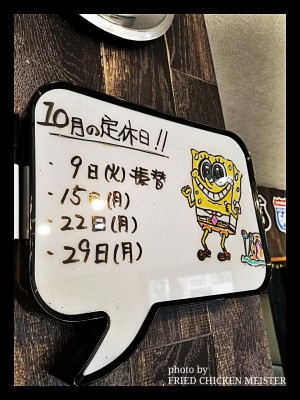 10月の定休日!!
・9日(火)振替
・15日(月)
・22日(月)
・29日(月)
photo by
FRIED CHICKEN MEISTER